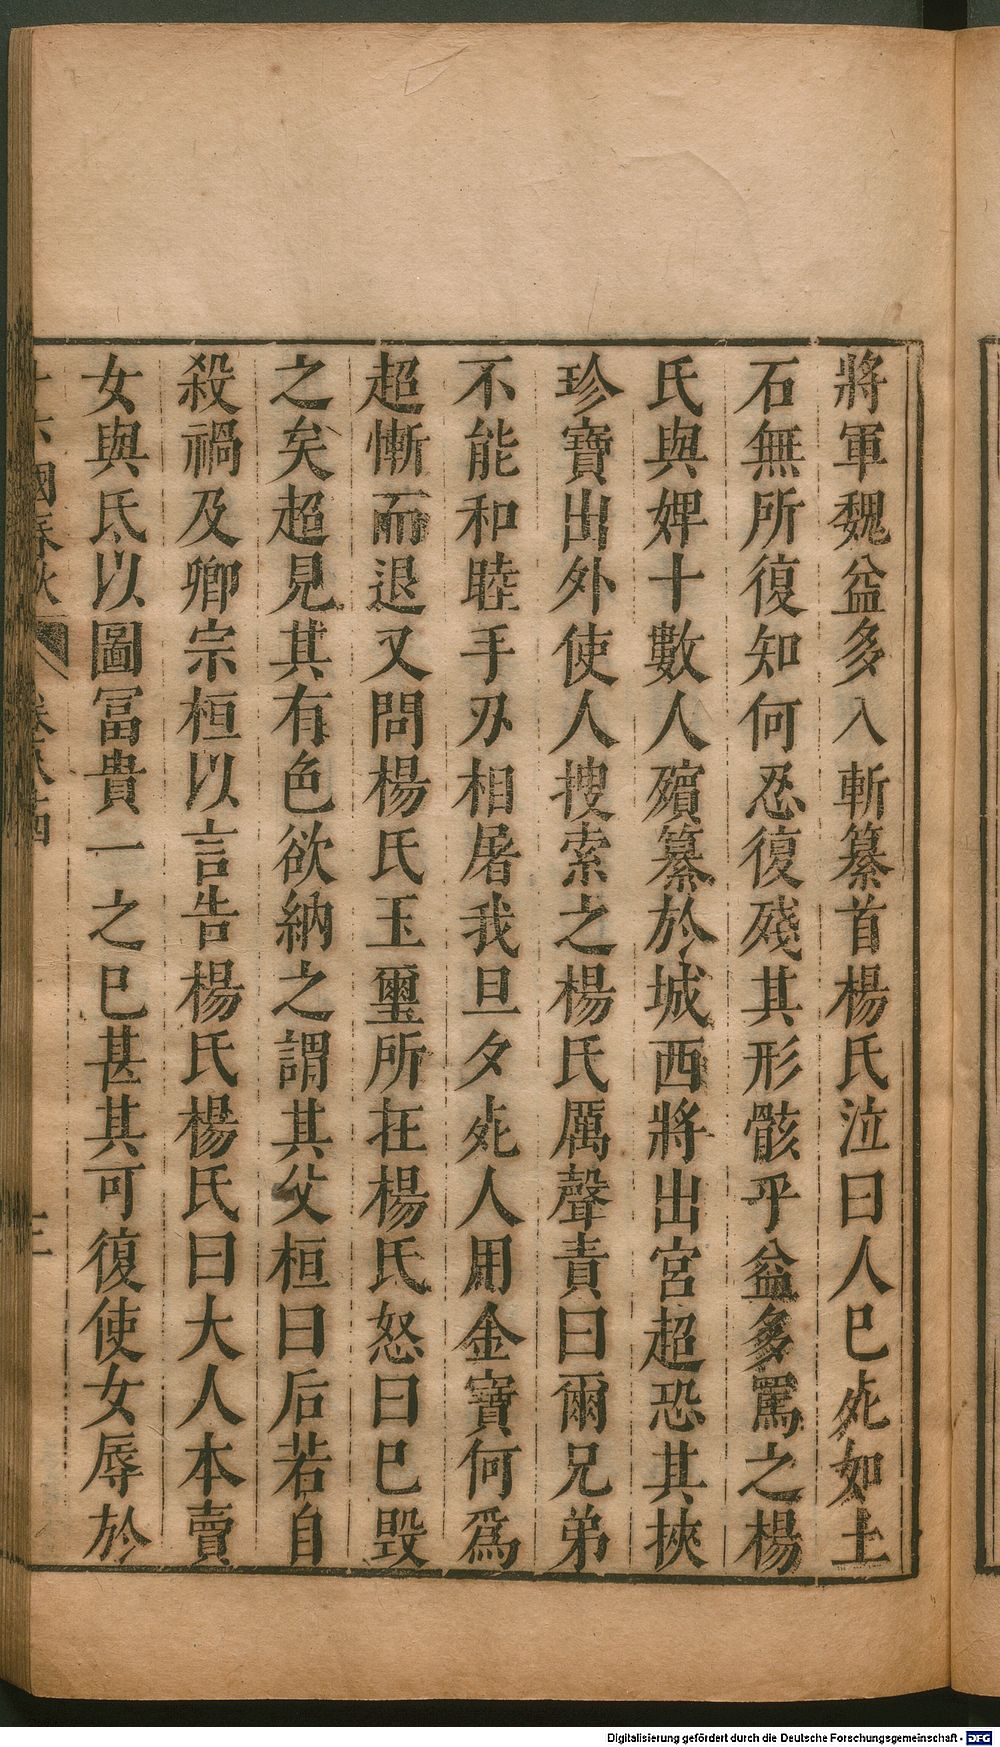 將軍魏益多入斬纂首楊氏泣曰人已死如土
石無所復知何忍復殘其形骸乎益多罵之楊
氏與婢十數人殯纂於城西將出宮超恐其挾
珍寶出外使人搜索之楊氏厲聲責曰爾兄弟
不能和睦手刃相屠我旦夕死人用金寶何爲
超慚而退又問楊氏玉璽所在楊氏怒曰已毀
之矣超見其有色欲納之謂其父桓曰后若自
殺禍及卿宗桓以言告楊氏楊氏曰大人本賣
女與氐以圖冨貴一之已甚其可復使女辱於
十六國春秋 卷八十四 三
Digitalisierung gefördert durch die Deutsche Forschungsgemeinschaft - DFG